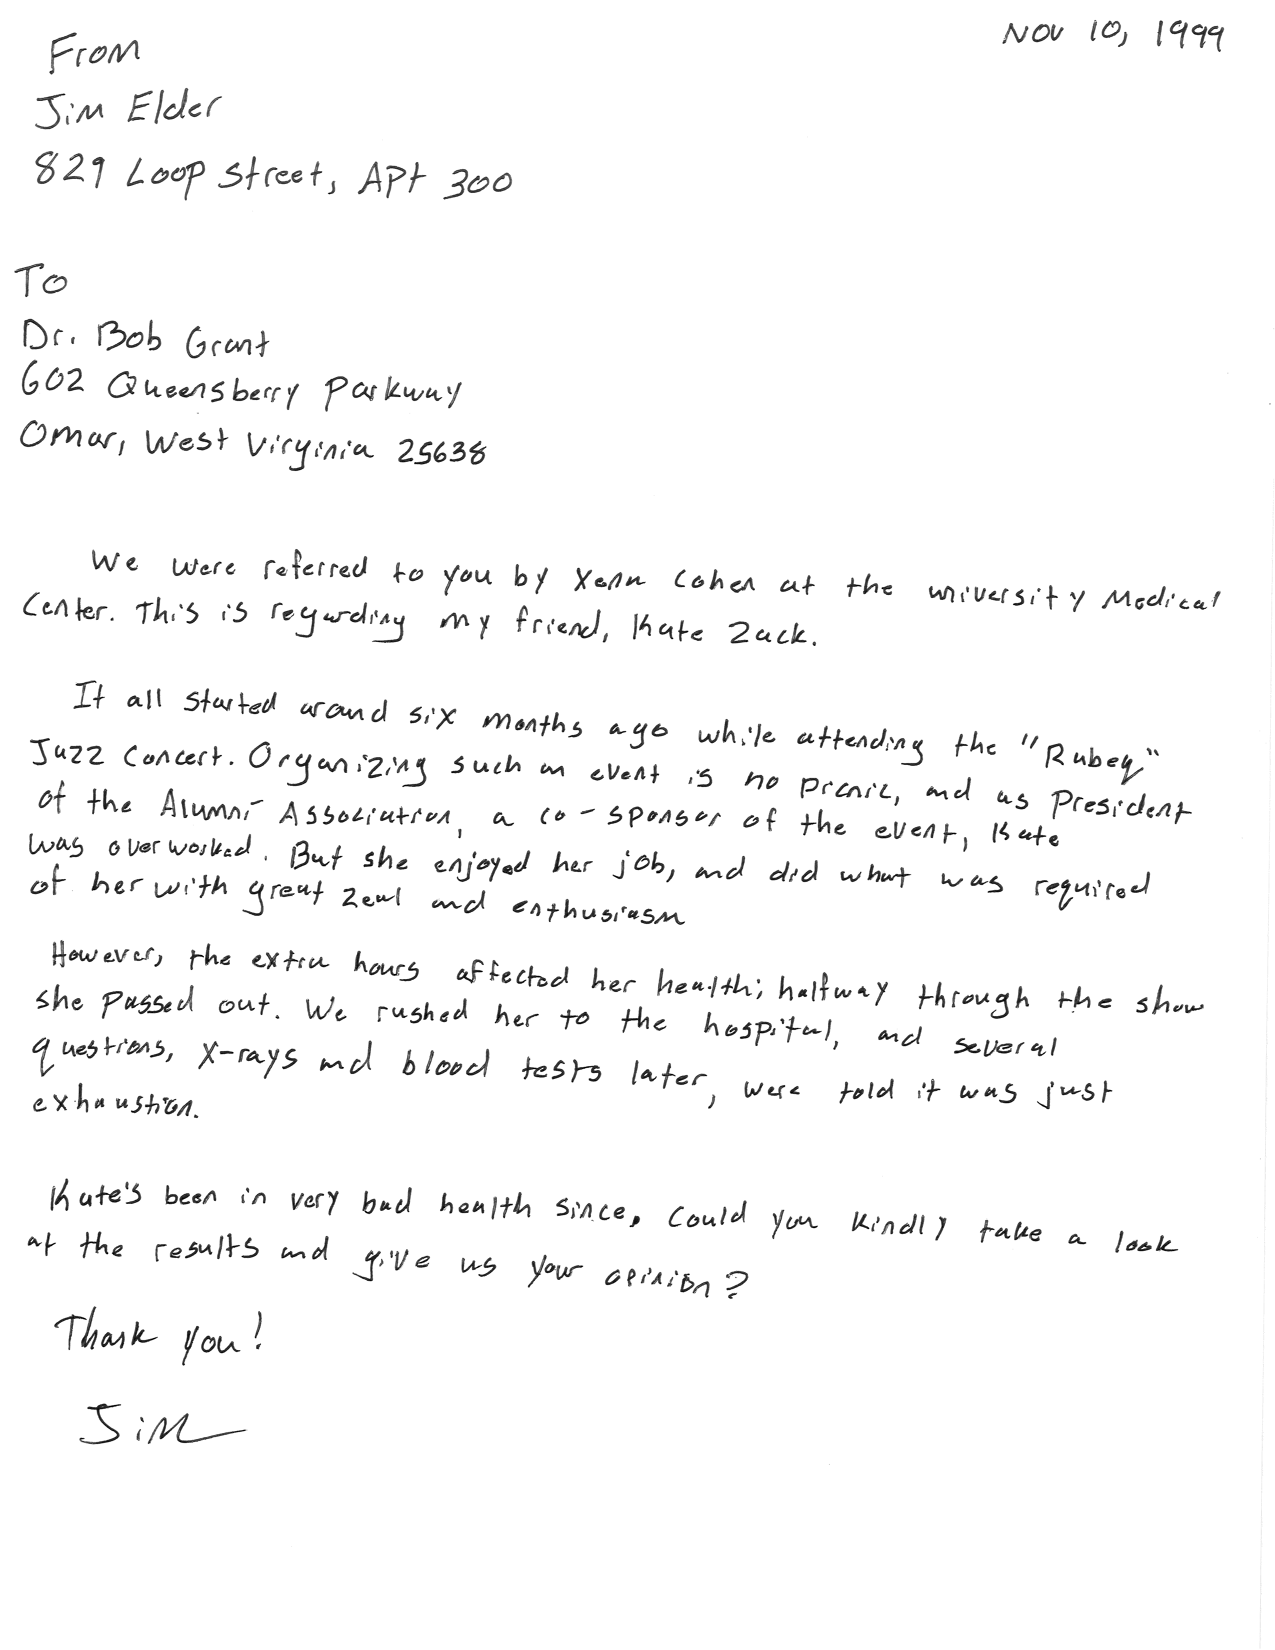 Nov 10, 1999
From
Jim Elder
829 Loop Street, Apt 300
To
Dr. Bob Grant
602 Queensberry Parkway
Omar, West Virginia 25638
We were referred to you by Xena Cohen at the University Medical
Center. This is regarding my friend, Kate Zack.
It all started around six months ago while attending the "Rubeq"
Jazz Concert. Organizing such an event is no picnic, and as President
of the Alumni Association, a co-sponsor of the event, Kate
was overworked. But she enjoyed her job, and did what was required
of her with great zeal and enthusiasm
However, the extra hours affected her health; halfway through the show
she passed out. We rushed her to the hospital, and several
questions, x-rays and blood tests later, were told it was just
exhaustion.
Kate's been in very bad health since. Could you kindly take a look
at the results and give us your opinion?
Thank you!
Jim